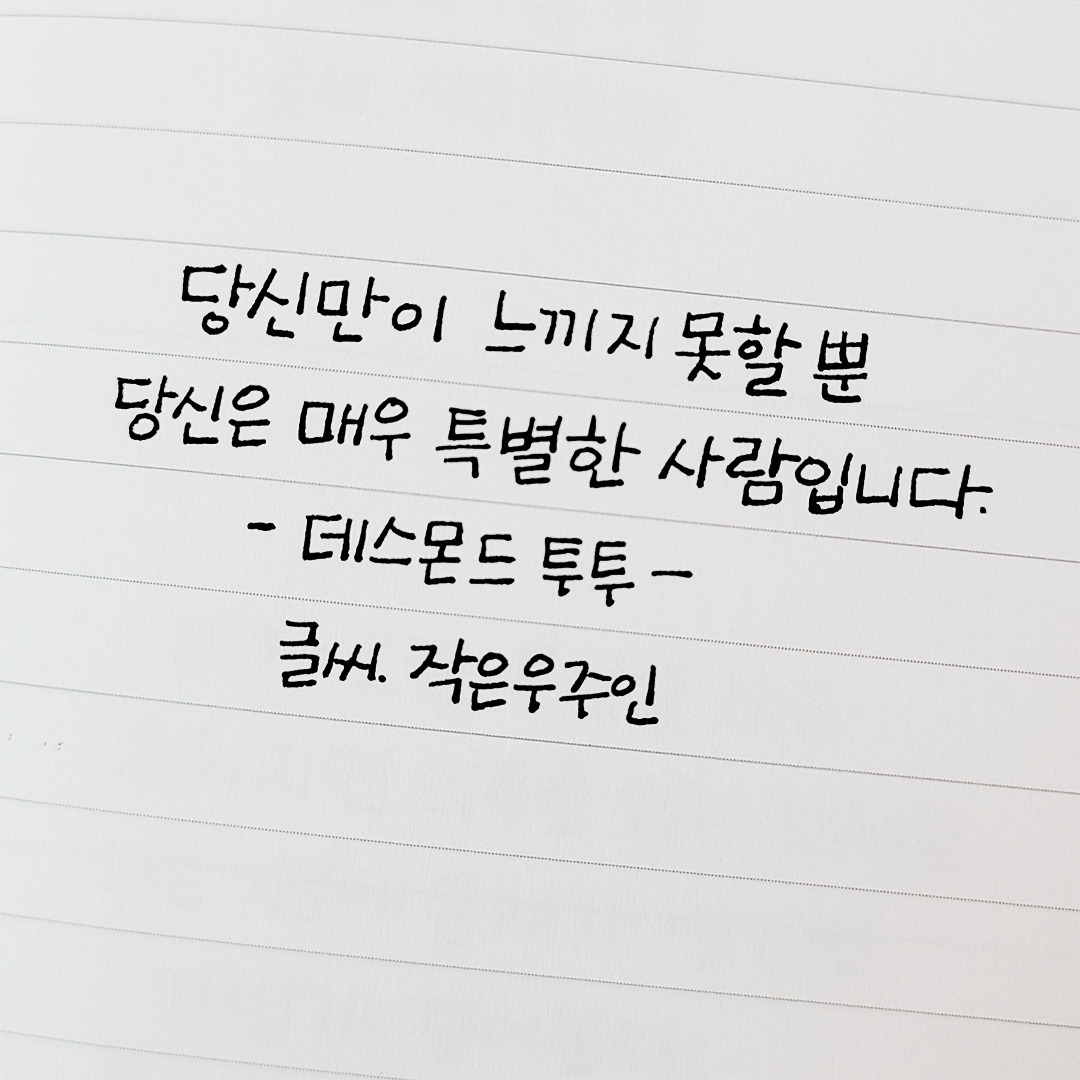 당신만이 느끼지 못할 뿐
당신은 매우 특별한 사람입니다.
- 데스몬드 투투 -
글씨. 작은우주인